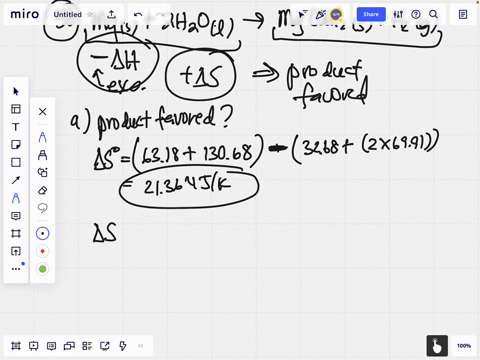 miro Untitled Share
Mg(s) + 2H₂O(l) → Mg(OH)₂(s) + H₂(g)
-ΔH
↑exo.
+ΔS ⇒ product
favored
a) product favored?
ΔS° = (63.18 + 130.68) - (32.68 + (2×69.91))
= 21.364 J/K
ΔS
100%